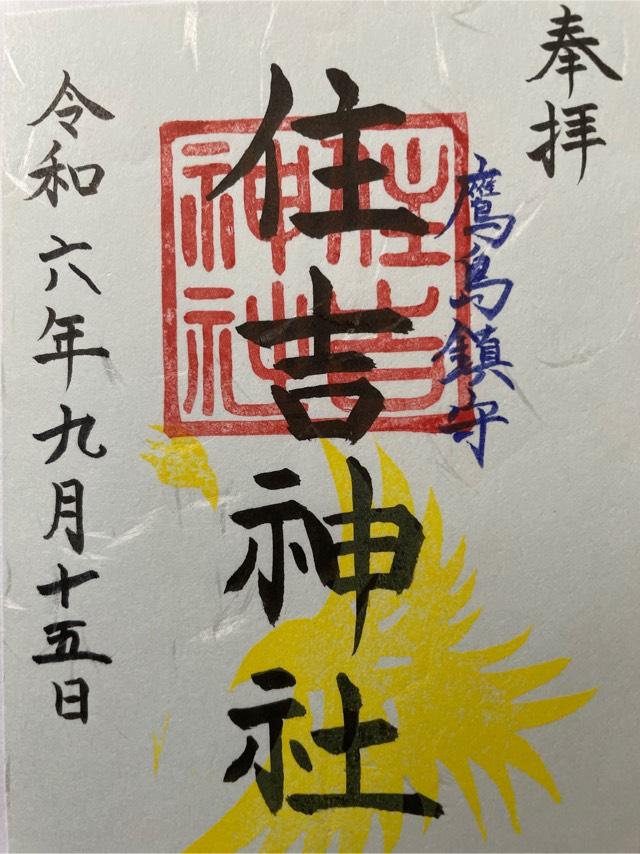 奉拝
鷹鳥鎮守
住吉神社
住吉
神社
令和六年九月十五日